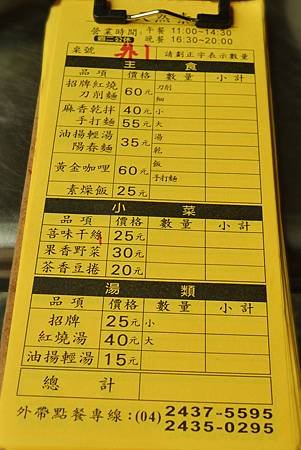 營業時間: 午餐 11:00~14:30
週二公休 晚餐 16:30~20:00
桌號 外1 請劃正字表示數量
主 食
品項 價格 數量 小計
招牌紅燒刀削麵 60元 刀削 細
麻香乾拌手打麵 40元 小 55元 大
油揚輕湯陽春麵 35元 湯 乾
黃金咖哩 60元 飯 手打麵
素燥飯 25元
小 菜
品項 價格 數量 小計
善味干絲 25元
果香野菜 30元
茶香豆捲 20元
湯 類
品項 價格 數量 小計
招牌 25元 小
紅燒湯 40元 大
油揚輕湯 15元
總 計
外帶點餐專線: (04) 2437-5595
2435-0295